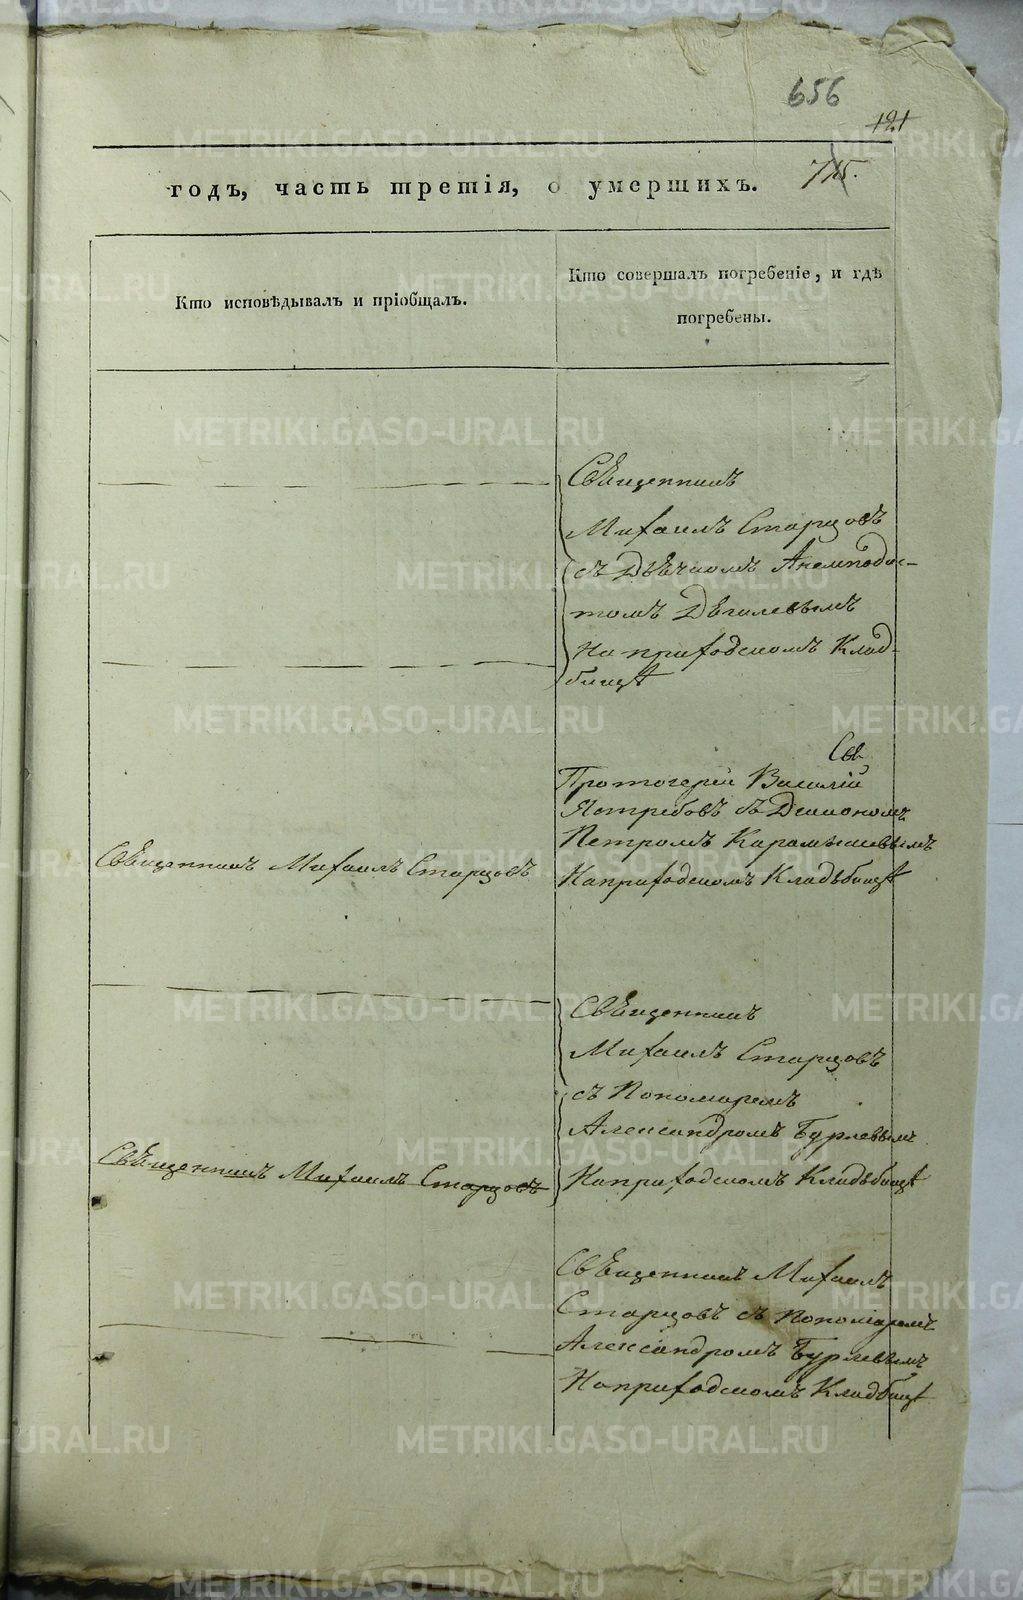 656
121
715.
годъ, часть третія, о умершихъ.
Кто исповѣдывалъ и пріобщалъ.
Кто совершалъ погребеніе, и гдѣ
погребены.
Священникъ
Михаилъ Старцовъ
съ Дьячкомъ Анемподис-
томъ Дѣгилевымъ
На приходскомъ Клад-
бищѣ
Священникъ Михаилъ Старцовъ
Протоіерей Василій
Ястребовъ съ Дьякономъ
Петромъ
На приходскомъ Кладьбищѣ
Священникъ
Михаилъ Старцовъ
съ Пономаремъ
Александромъ Бурлевымъ
На приходскомъ Кладьбищѣ
Священникъ Михаилъ Старцовъ
Священникъ Михаилъ
Старцовъ съ Пономаремъ
Александромъ Бурлевымъ
На приходскомъ Кладбищѣ
METRIKI.GASO-URAL.RU